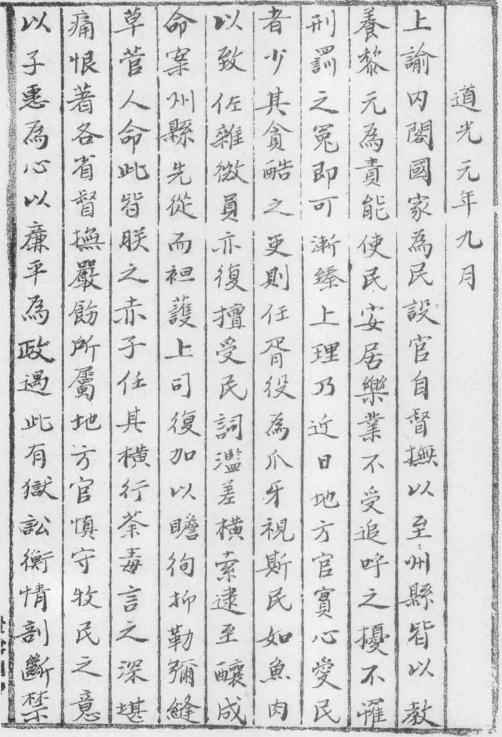 道光元年九月
上諭内閣國家為民設官自督撫以至州縣皆以教
養黎元為責能使民安居樂業不受追呼之擾不罹
刑罰之冤即可漸臻上理乃近日地方官實心愛民
者少其貪酷之吏則任胥役為爪牙視斯民如魚肉
以致佐雜微員亦復擅受民詞濫差橫索逮至釀成
命案州縣先從而袒護上司復加以瞻徇抑勒彌縫
草菅人命此皆朕之赤子任其橫行荼毒言之深堪
痛恨著各省督撫嚴飭所屬地方官慎守牧民之意
以子惠為心以廉平為政遇此有獄訟衡情剖斷禁